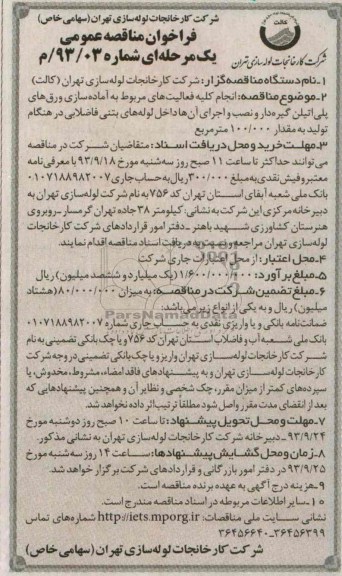 شرکت کارخانجات لوله‌سازی تهران (سهامی خاص)
کالت
شرکت کارخانجات لوله‌سازی تهران
فراخوان مناقصه عمومی
یک مرحله‌ای شماره ۹۳/۰۳/م
۱-نام دستگاه مناقصه‌گزار: شرکت کارخانجات لوله‌سازی تهران (کالت)
۲-موضوع مناقصه: انجام کلیه فعالیت‌های مربوط به آماده‌سازی ورق‌های
پلی‌اتیلن گیره‌دار و نصب و اجرای آن‌ها داخل لوله‌های بتنی فاضلابی در هنگام
تولید به مقدار ۱۰۰/۰۰۰ مترمربع
۳-مهلت خرید و محل دریافت اسناد: متقاضیان شرکت در مناقصه
می‌توانند حداکثر تا ساعت ۱۱ صبح روز سه‌شنبه مورخ ۹۳/۹/۱۸ با معرفی‌نامه
معتبر و فیش نقدی به مبلغ ۳۰۰/۰۰۰ ریال به حساب جاری ۰۱۰۷۱۸۸۹۸۲۰۰۷
بانک ملی شعبه آبفای استان تهران کد ۷۵۶ به نام شرکت لوله‌سازی تهران به
دبیرخانه مرکزی این شرکت به نشانی: کیلومتر ۳۸ جاده تهران گرمسار-روبروی
هنرستان کشاورزی شهید باهنر-دفتر امور قراردادهای شرکت کارخانجات
لوله‌سازی تهران مراجعه و نسبت به دریافت اسناد مناقصه اقدام نمایند.
۴-محل اعتبار: از محل اعتبارات جاری شرکت
۵-مبلغ برآورد: ۱/۶۰۰/۰۰۰/۰۰۰ (یک میلیارد و ششصد میلیون) ریال
۶-مبلغ تضمین شرکت در مناقصه: به میزان ۸۰/۰۰۰/۰۰۰ (هشتاد
میلیون) ریال و به یکی از انواع زیر می‌باشد:
ضمانت‌نامه بانکی و یا واریزی نقدی به حساب جاری شماره ۰۱۰۷۱۸۸۹۸۲۰۰۷
بانک ملی شعبه آب و فاضلاب استان تهران کد ۷۵۶ و یا چک بانکی تضمینی به نام
شرکت کارخانجات لوله‌سازی تهران واریز و یا چک بانکی تضمینی در وجه شرکت
کارخانجات لوله‌سازی تهران و به پیشنهادهای فاقد امضاء، مشروط، مخدوش، یا
سپرده‌های کمتر از میزان مقرر، چک شخصی و نظایر آن و همچنین پیشنهادهایی که
بعد از انقضای مدت مقرر واصل شود مطلقاً ترتیب اثر داده نخواهد شد.
۷-مهلت و محل تحویل پیشنهاد: تا ساعت ۱۰ صبح روز دوشنبه مورخ
۹۳/۹/۲۴-دبیرخانه شرکت کارخانجات لوله‌سازی تهران به نشانی مذکور.
۸-زمان و محل گشایش پیشنهادها: ساعت ۱۴ روز سه‌شنبه مورخ
۹۳/۹/۲۵ در دفتر امور بازرگانی و قراردادهای شرکت برگزار خواهد شد.
۹-هزینه درج آگهی به عهده برنده مناقصه است.
۱۰-سایر اطلاعات مربوطه در اسناد مناقصه مندرج است.
نشانی سایت ملی مناقصات: http://iets.mporg.ir شماره‌های تماس
۳۶۴۵۶۳۹۹-۳۶۴۵۶۶۴۰
شرکت کارخانجات لوله‌سازی تهران (سهامی خاص)